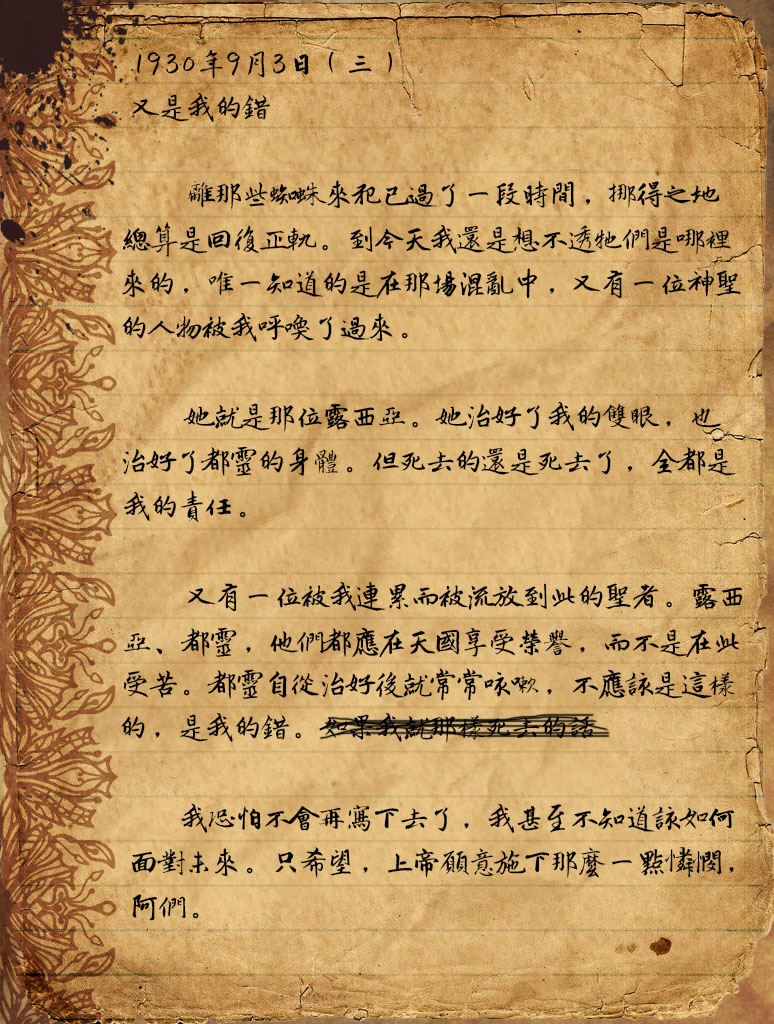 1930年9月3日(三)
又是我的錯
離那些蜘蛛來犯已過了一段時間，挪得之地
總算是回復正軌。到今天我還是想不透牠們是哪裡
來的，唯一知道的是在那場混亂中，又有一位神聖
的人物被我呼喚了過來。
她就是那位露西亞。她治好了我的雙眼，也
治好了都靈的身體。但死去的還是死去了，全都是
我的責任。
又有一位被我連累而被流放到此的聖者。露西
亞、都靈，他們都應在天國享受榮譽，而不是在此
受苦。都靈自從治好後就常常咳嗽，不應該是這樣
的，是我的錯。如果我就那樣死去的話
我恐怕不會再寫下去了，我甚至不知道該如何
面對未來。只希望，上帝願意施下那麼一點憐憫，
阿們。